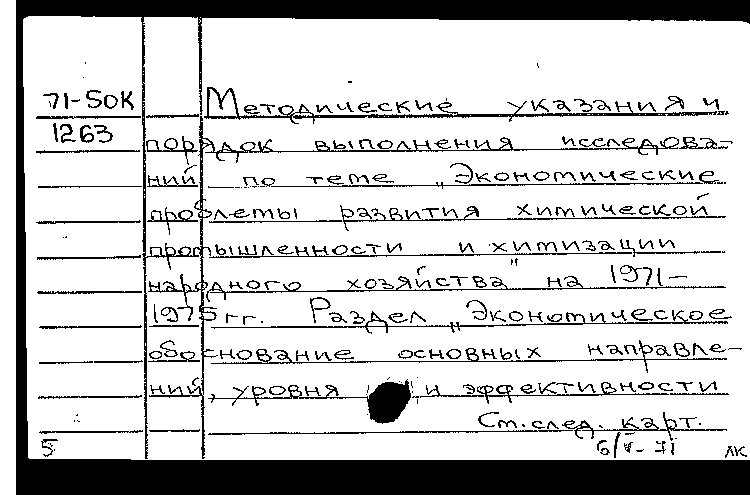 71-50К Методические указания и
1263 порядок выполнения исследова-
ний по теме „Экономические
проблемы развития химической
промышленности и химизации
народного хозяйства" на 1971-
1975 гг. Раздел „Экономическое
обоснование основных направле-
ний, уровня и эффективности
См. след. карт.
5 6/V-71 ЛК